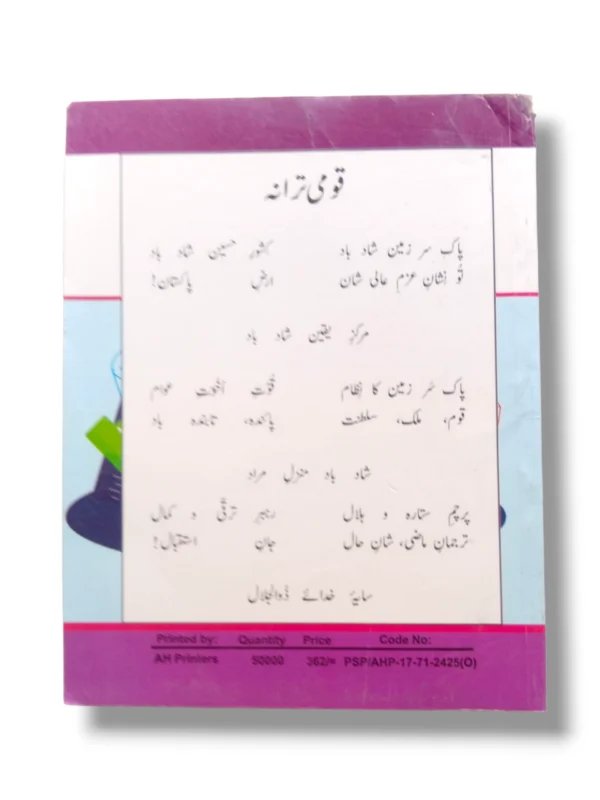 قومی ترانہ
پاک سر زمین شاد باد کشورِ حسین شاد باد
تُو نشانِ عزم عالی شان ارضِ پاکستان!
مرکزِ یقین شاد باد
پاک سَر زمین کا نظام قُوّتِ اُخُوّتِ عوام
قوم، ملک، سلطنت پائندہ، تابندہ باد
شاد باد منزلِ مراد
پرچمِ ستارہ و ہلال رہبرِ ترقّی و کمال
ترجمانِ ماضی، شانِ حال جانِ استقبال!
سایۂ خدائے ذُوالجلال
Printed by: Quantity Price Code No:
AH Printers 50000 362/= PSP/AHP-17-71-2425(O)